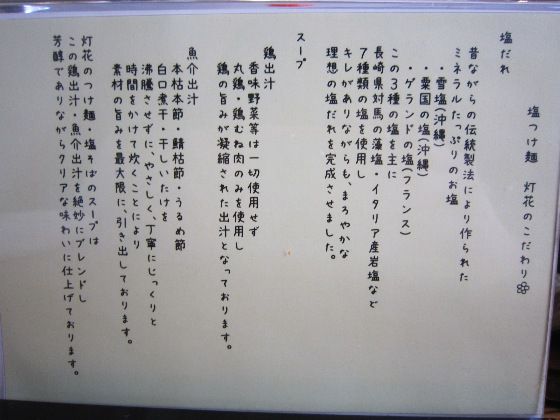 塩つけ麺 灯花のこだわり
塩だれ
昔ながらの伝統製法により作られた
ミネラルたっぷりのお塩
・雪塩(沖縄)
・粟国の塩(沖縄)
・ゲランドの塩(フランス)
この3種の塩を主に
長崎県対馬の藻塩・イタリア産岩塩など
7種類の塩を使用し
キレがありながらも、まろやかな
理想の塩だれを完成させました。
スープ
鶏出汁
香味野菜等は一切使用せず
丸鶏・鶏むね肉のみを使用し
鶏の旨みが凝縮された出汁となっております。
魚介出汁
本枯本節・鯖枯節・うるめ節
白口煮干・干しいたけを
沸騰させずに、やさしく、丁寧にじっくりと
時間をかけて炊くことにより
素材の旨みを最大限に引き出しております。
灯花のつけ麺・塩そばのスープは
この鶏出汁・魚介出汁を絶妙にブレンドし
芳醇でありながらクリアな味わいに仕上げております。